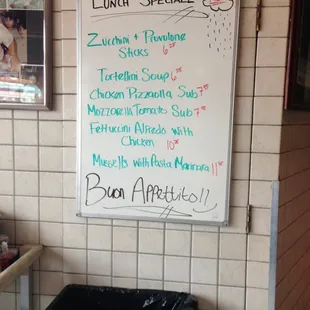 Lunch Specials
Zucchini + Provolone
Sticks
Tortellini Soup
Chicken Pizzaiolla Sub
Mozzarella Tomato Sub
Fettuccini Alfredo with
Chicken
Mussells with Pasta Marinara
Buon Appettito!!